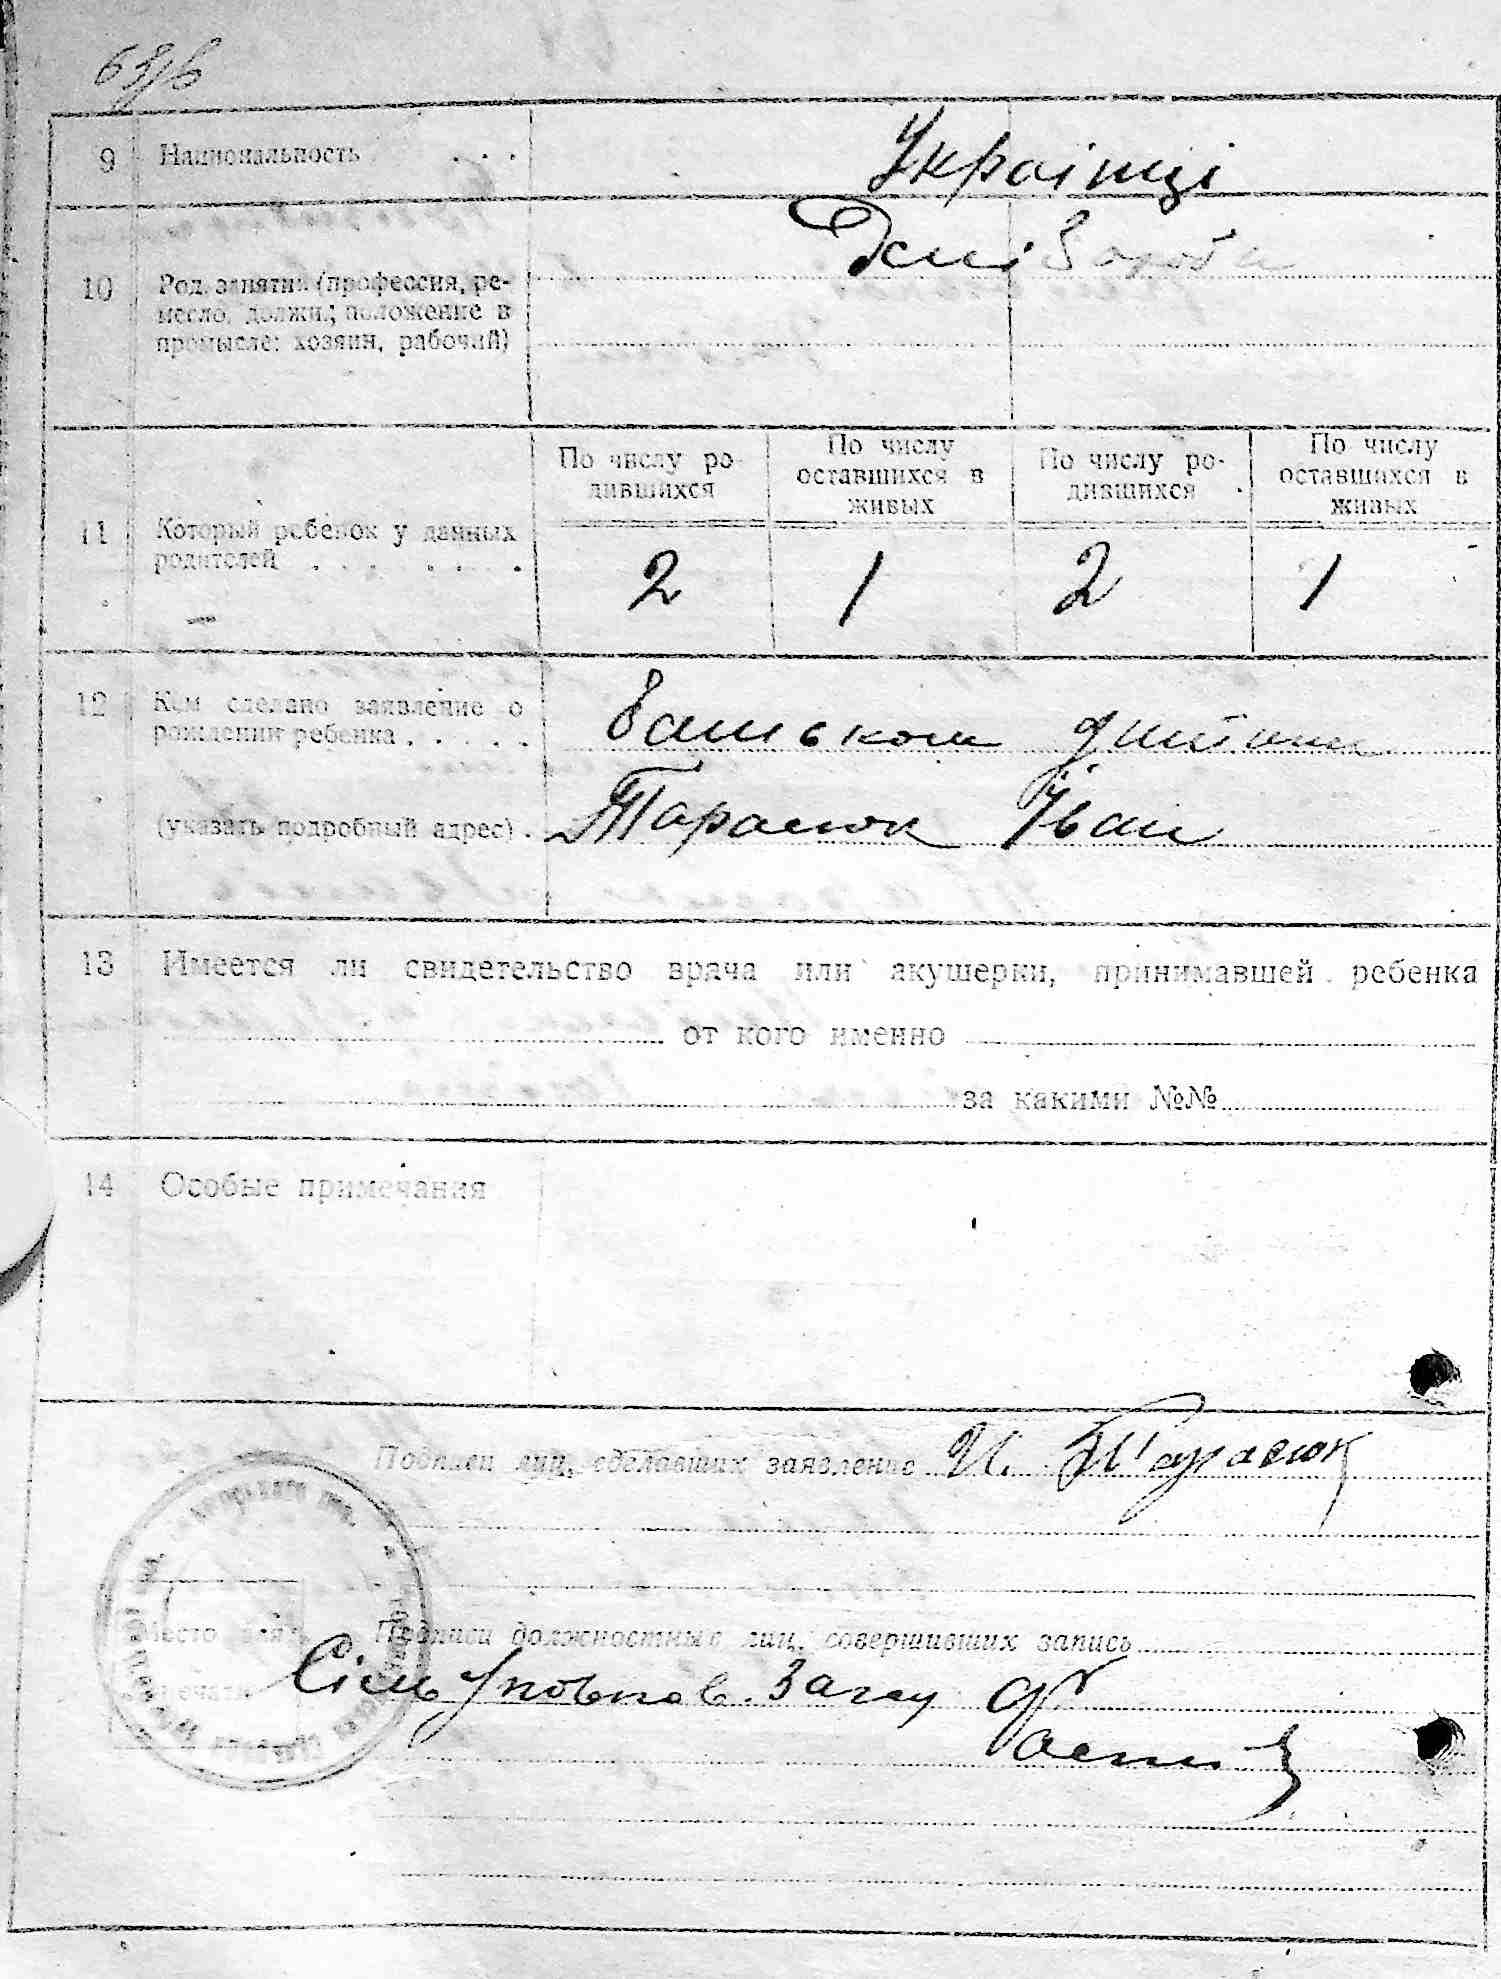 9 Национальность . . . Українці
10 Род занятий (профессия, ре-
месло, должн.; положение в
промысле: хозяин, рабочий)
11 Который ребенок у данных
родителей . . . . . . .
По числу ро-
дившихся
По числу
оставшихся в
живых
По числу ро-
дившихся
По числу
оставшихся в
живых
2 1 2 1
12 Кем сделано заявление о
рождении ребенка . . . . .
Батьком дитини
(указать подробный адрес) . Тарасюк Іван
13 Имеется ли свидетельство врача или акушерки, принимавшей ребенка
от кого именно
за какими №№
14 Особые примечания
Подписи лиц, сделавших заявление И. Тарасюк
Место для
печати
Подписи должностных лиц, совершивших запись
Сіль Уповнов. Загсу